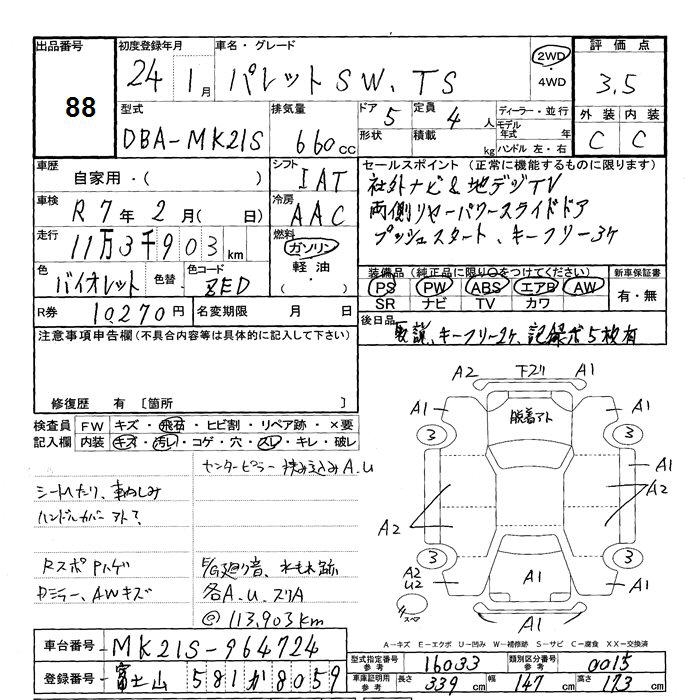 出品番号 初度登録年月 車名・グレード 評価点
88 24年 1月 パレットSW、TS 2WD ・ 4WD 3.5
型式 排気量 ドア 5 定員 4人 ディーラー・並行 外装 内装
DBA-MK21S 660cc 形状 積載 kg モデル年式 年 ハンドル 左・右 C C
車歴 自家用・( ) シフト IAT セールスポイント (正常に機能するものに限ります)
社外ナビ&地デジTV
車検 R7年2月( 日) 冷房 AAC 両側リヤーパワースライドドア
走行 11万3千903km 燃料 ガソリン・軽油・( ) プッシュスタート、キーフリー3ケ
色 バイオレット 色替 色コード ZED 装備品(純正品に限り○をつけてください) 新車保証書
PS PW ABS エアB AW 有・無
SR ナビ TV カワ
R券 10270円 名変期限 月 日
後日品 取説、キーフリー2ケ、記録ボ5枚有
注意事項申告欄(不具合内容等は具体的に記入して下さい)
修復歴 有 [箇所 ]
検査員記入欄 FW キズ・飛石・ヒビ割・リペア跡・×要
内装 キズ・汚レ・コゲ・穴・スレ・キレ・破レ
センターピラー挟み込みA.U
シートへたり、車内しみ
ハンドルカバーアト?
RスポPハゲ
Dミラー、AWキズ
E/G廻り音、水もれ跡
各A.U、スリA
@113,903km
A2 下スリ A1
A1 脱着アト A1
3 3
A1
A2 A2
3 3
A2 U2 A1 A1
スペア
A1
A-キズ E-エクボ U-凹み W-補修跡 S-サビ C-腐食 XX-交換済
車台番号 MK21S-964724
型式指定番号 参考 16033 類別区分番号 参考 0015
登録番号 富士山 581 か 8059
車庫証明用 参考 長さ 339cm 幅 147cm 高さ 173cm